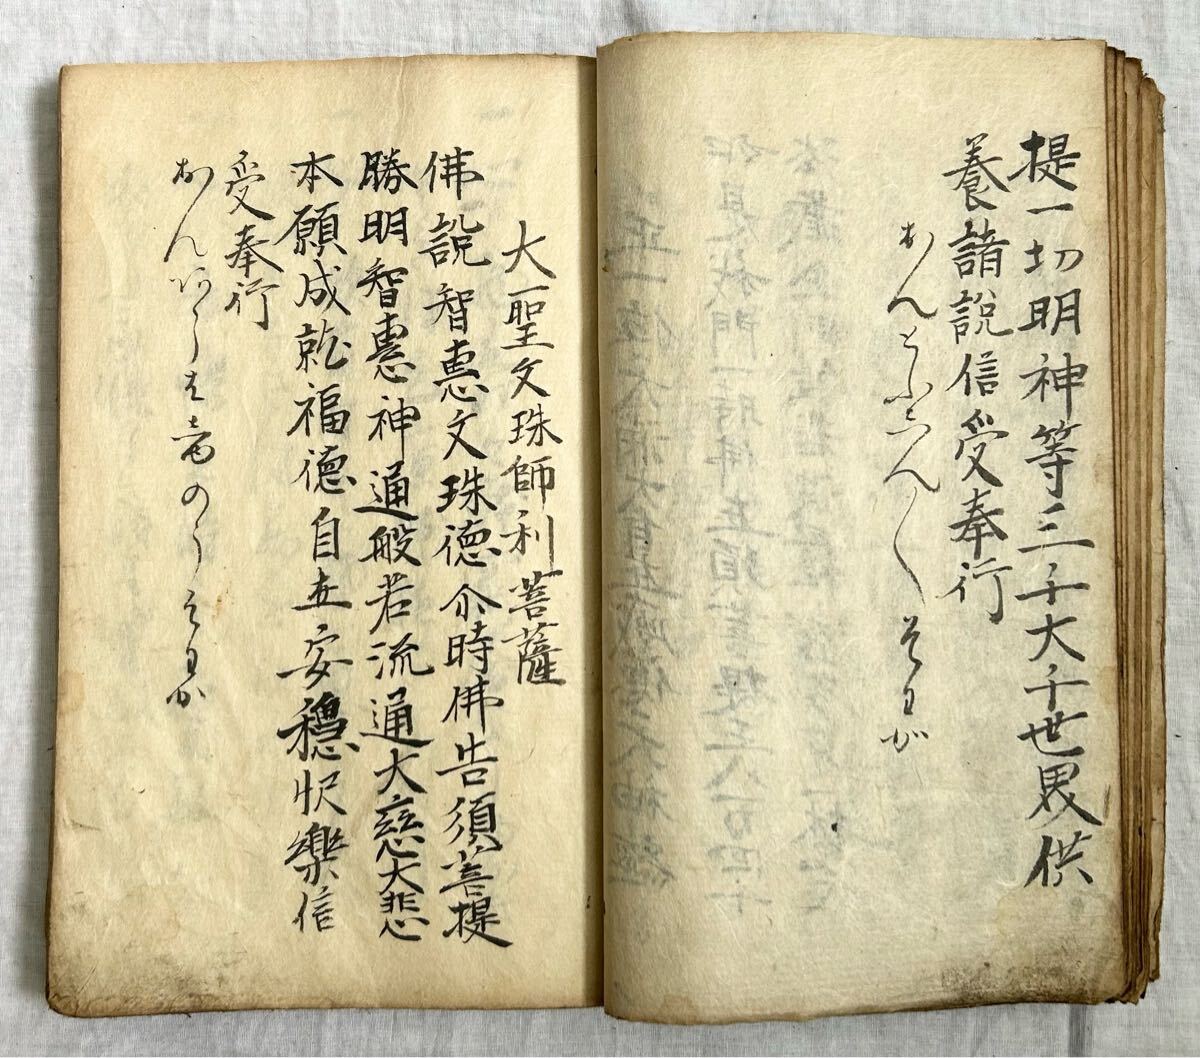 提一切明神等三千大千世界供
養諸説信受奉行
おんとふ〱そわか
大聖文珠師利菩薩
佛説智惠文珠德尒時佛告須菩提
勝明智惠神通般若流通大慈大悲
本願成就福德自在安穩快樂信
受奉行
おんあらはしやのうそわか